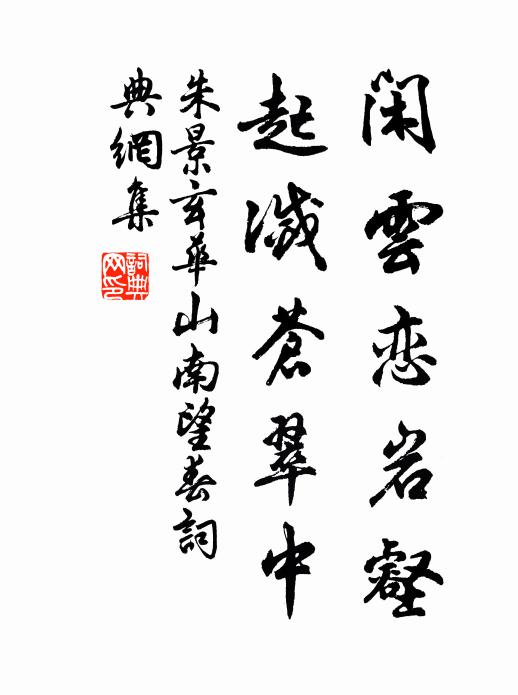 闲雲恋岩壑
起滅蒼翠中
朱景玄華山南望春詞
典網集
詞典网印